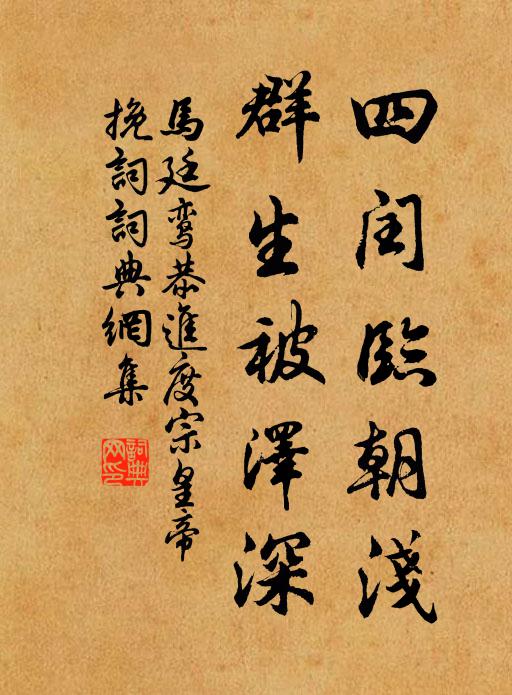 四闰臨朝淺
群生被澤深
馬廷鸾恭進度宗皇帝
挽詞詞典網集
詞典網印